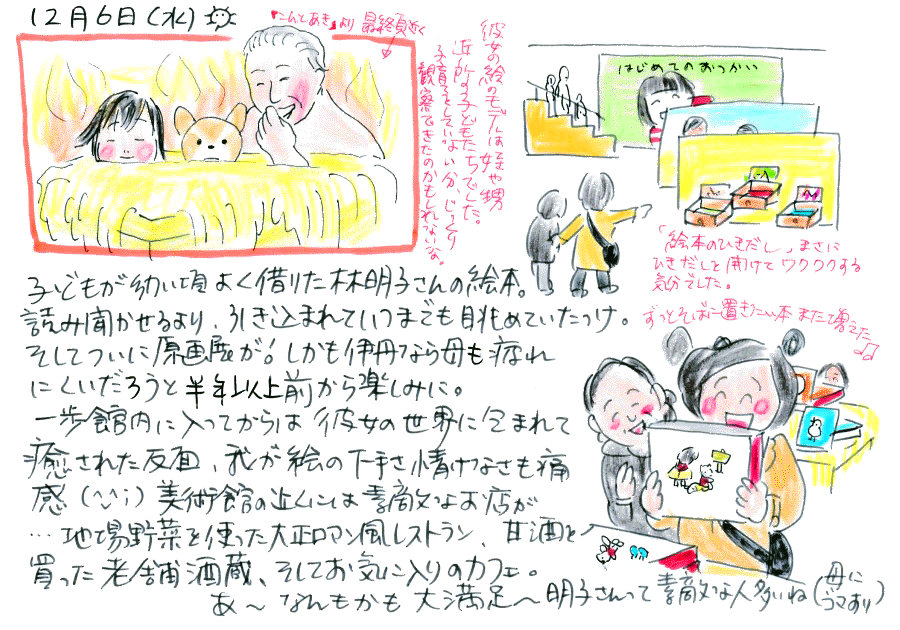 12月6日(水)
「こんとあき」より 最終頁近く
彼女の絵のモデルは姪や甥
近所の子どもたちでした。
子育てをしていない分、じっくり
観察できたのかもしれないな。
はじめてのおつかい
「絵本のひきだし」、まさに
ひきだしを開けてワクワクする
気分でした。
子どもが幼い頃よく借りた林明子さんの絵本。
読み聞かせるより、引き込まれていつまでも眺めていたっけ。
そしてついに原画展が!しかも伊丹なら母も疲れ
にくいだろうと半年以上前から楽しみに。
一歩館内に入ってからは彼女の世界に包まれて
癒された反面、我が絵の下手さ情けなさも痛
感(^^;)美術館の近くには素敵なお店が
…地場野菜を使った大正ロマン風レストラン、甘酒を
買った老舗酒蔵、そしてお気に入りのカフェ。
あ〜なんもかも大満足〜明子さんって素敵な人多いね(母に
ゴマすり)
ずっとそばに置きたい本 また増えた♫